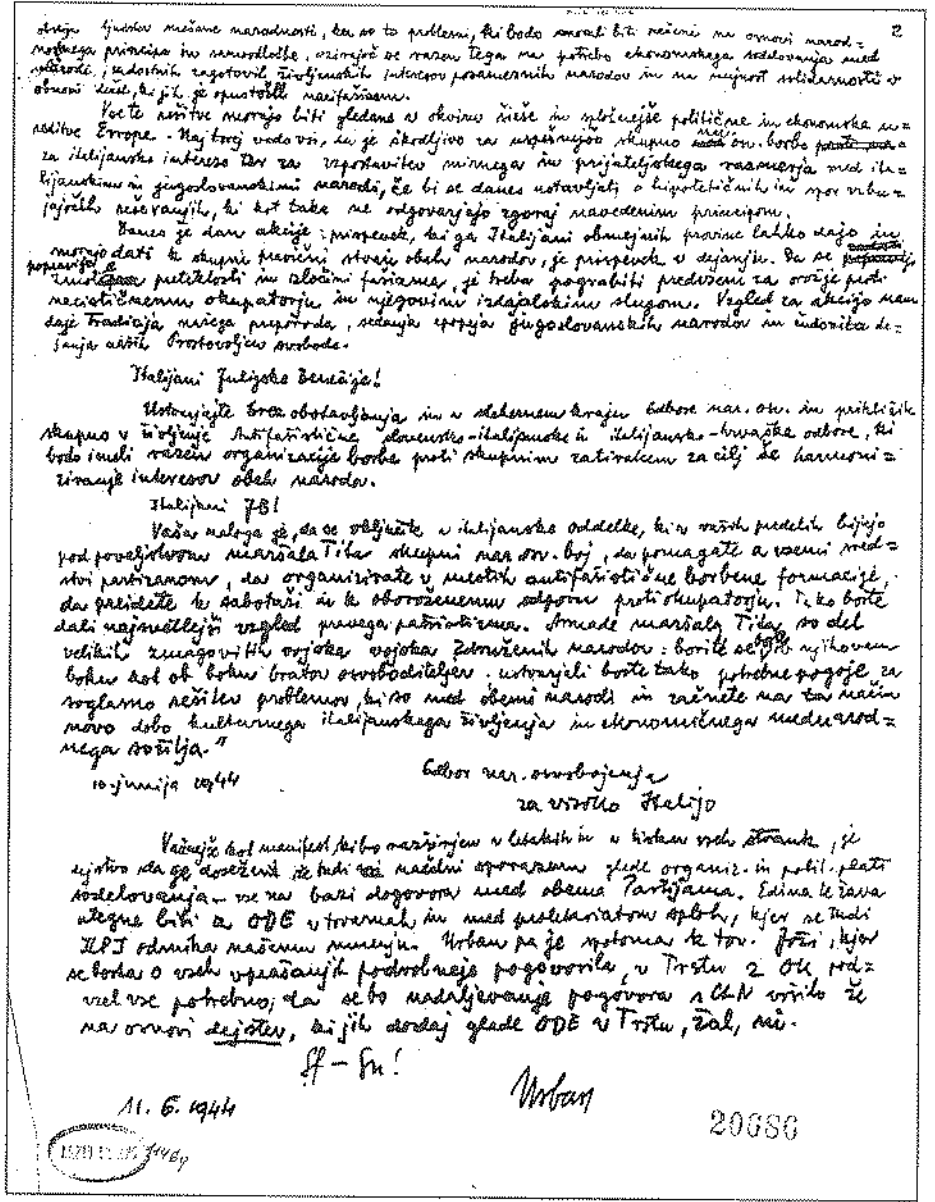 2
ljudstva mešane narodnosti, ker so to problemi, ki bodo morali biti rešeni na osnovi narod=
nostnega principa in samoodločbe, ozirajoč se razen tega na potrebo ekonomskega sodelovanja med
narodi, zadostnih zagotovil življenjskih interesov posameznih narodov in na nujnost solidarnosti v
obnovi dežel, ki jih je opustošil nacifašizem.
Vse te rešitve morajo biti gledane v okviru širše in splošnejše politične in ekonomske u=
reditve Evrope. - Naj torej vedo vsi, da je škodljivo za uspešnejšo skupno nar. osv. borbo
za italijanske interese ter za vzpostavitev mirnega in prijateljskega razmerja med ita=
lijanskimi in jugoslovanskimi narodi, če bi se danes ustavljali o hipotetičnih in spor vzbu=
jajočih reševanjih, ki kot taka ne odgovarjajo zgoraj navedenim principom.
Danes je dan akcije: prispevek, ki ga Italijani obmejnih provinc lahko dajo in
morajo dati k skupni pravični stvari obeh narodov, je prispevek v dejanju. Da se
popravijo zmote preteklosti in zločini fašizma, je treba pograbiti predvsem za orožje proti
nacističnemu okupatorju in njegovim izdajalskim slugom. Vzgled za akcijo nam
daje Tradicija našega preporoda, sedanja epopeja jugoslovanskih narodov in čudovita de=
janja naših Prostovoljcev svobode.
Italijani Julijske Benečije!
Ustanavljajte brez obotavljanja in v slehernem kraju Odbore nar. osv. in prikličite
skupno v življenje Antifašistične slovensko-italijanske in italijansko-hrvaške odbore, ki
bodo imeli razen organizacije borbe proti skupnim zatiralcem za cilj še harmoni=
ziranje interesov obeh narodov.
Italijani JB!
Vaša naloga je, da se vključite v italijanske oddelke, ki v vaših predelih bijejo
pod poveljstvom maršala Tita skupni nar. osv. boj, da pomagate z vsemi sred=
stvi partizanom, da organizirate v mestih antifašistične borbene formacije,
da preidete k sabotaži in k oboroženemu odporu proti okupatorju. Tako boste
dali najsvetlejši vzgled pravega patriotizma. Armade maršala Tita so del
velikih zmagovitih vojska Združenih narodov: borite se ob njihovem
boku kot ob boku bratov osvoboditeljev. ustvarjali boste tako potrebne pogoje za
soglasno rešitev problemov, ki so med obemi narodi in začnete na ta način
novo dobo kulturnega italijanskega življenja in ekonomičnega mednarod=
nega sožitja."
10. junija 1944
Odbor nar. osvobojenja
za visoko Italijo
Važnejše kot manifest, ki bo razširjen v letakih in v tisku vseh strank, je
dejstvo da je dosežen tudi načelni sporazum glede organiz. in polit. plati
sodelovanja - vse na bazi dogovora med obema Partijama. Edina težava
utegne biti z ODE v tovarnah in med proletariatom sploh, kjer se tudi
KPI odmika našemu mnenju. Urban pa je spotoma k tov. Joži, kjer
se bosta o vseh vprašanjih podrobneje pogovorila, v Trstu z OK pod=
vzel vse potrebno, da se bo nadaljevanje pogovora s CLN vršilo že
na osnovi dejstev, ki jih dozdaj glede ODE v Trstu, žal, ni.
Sf - Sn!
11. 6. 1944
Urban
20686